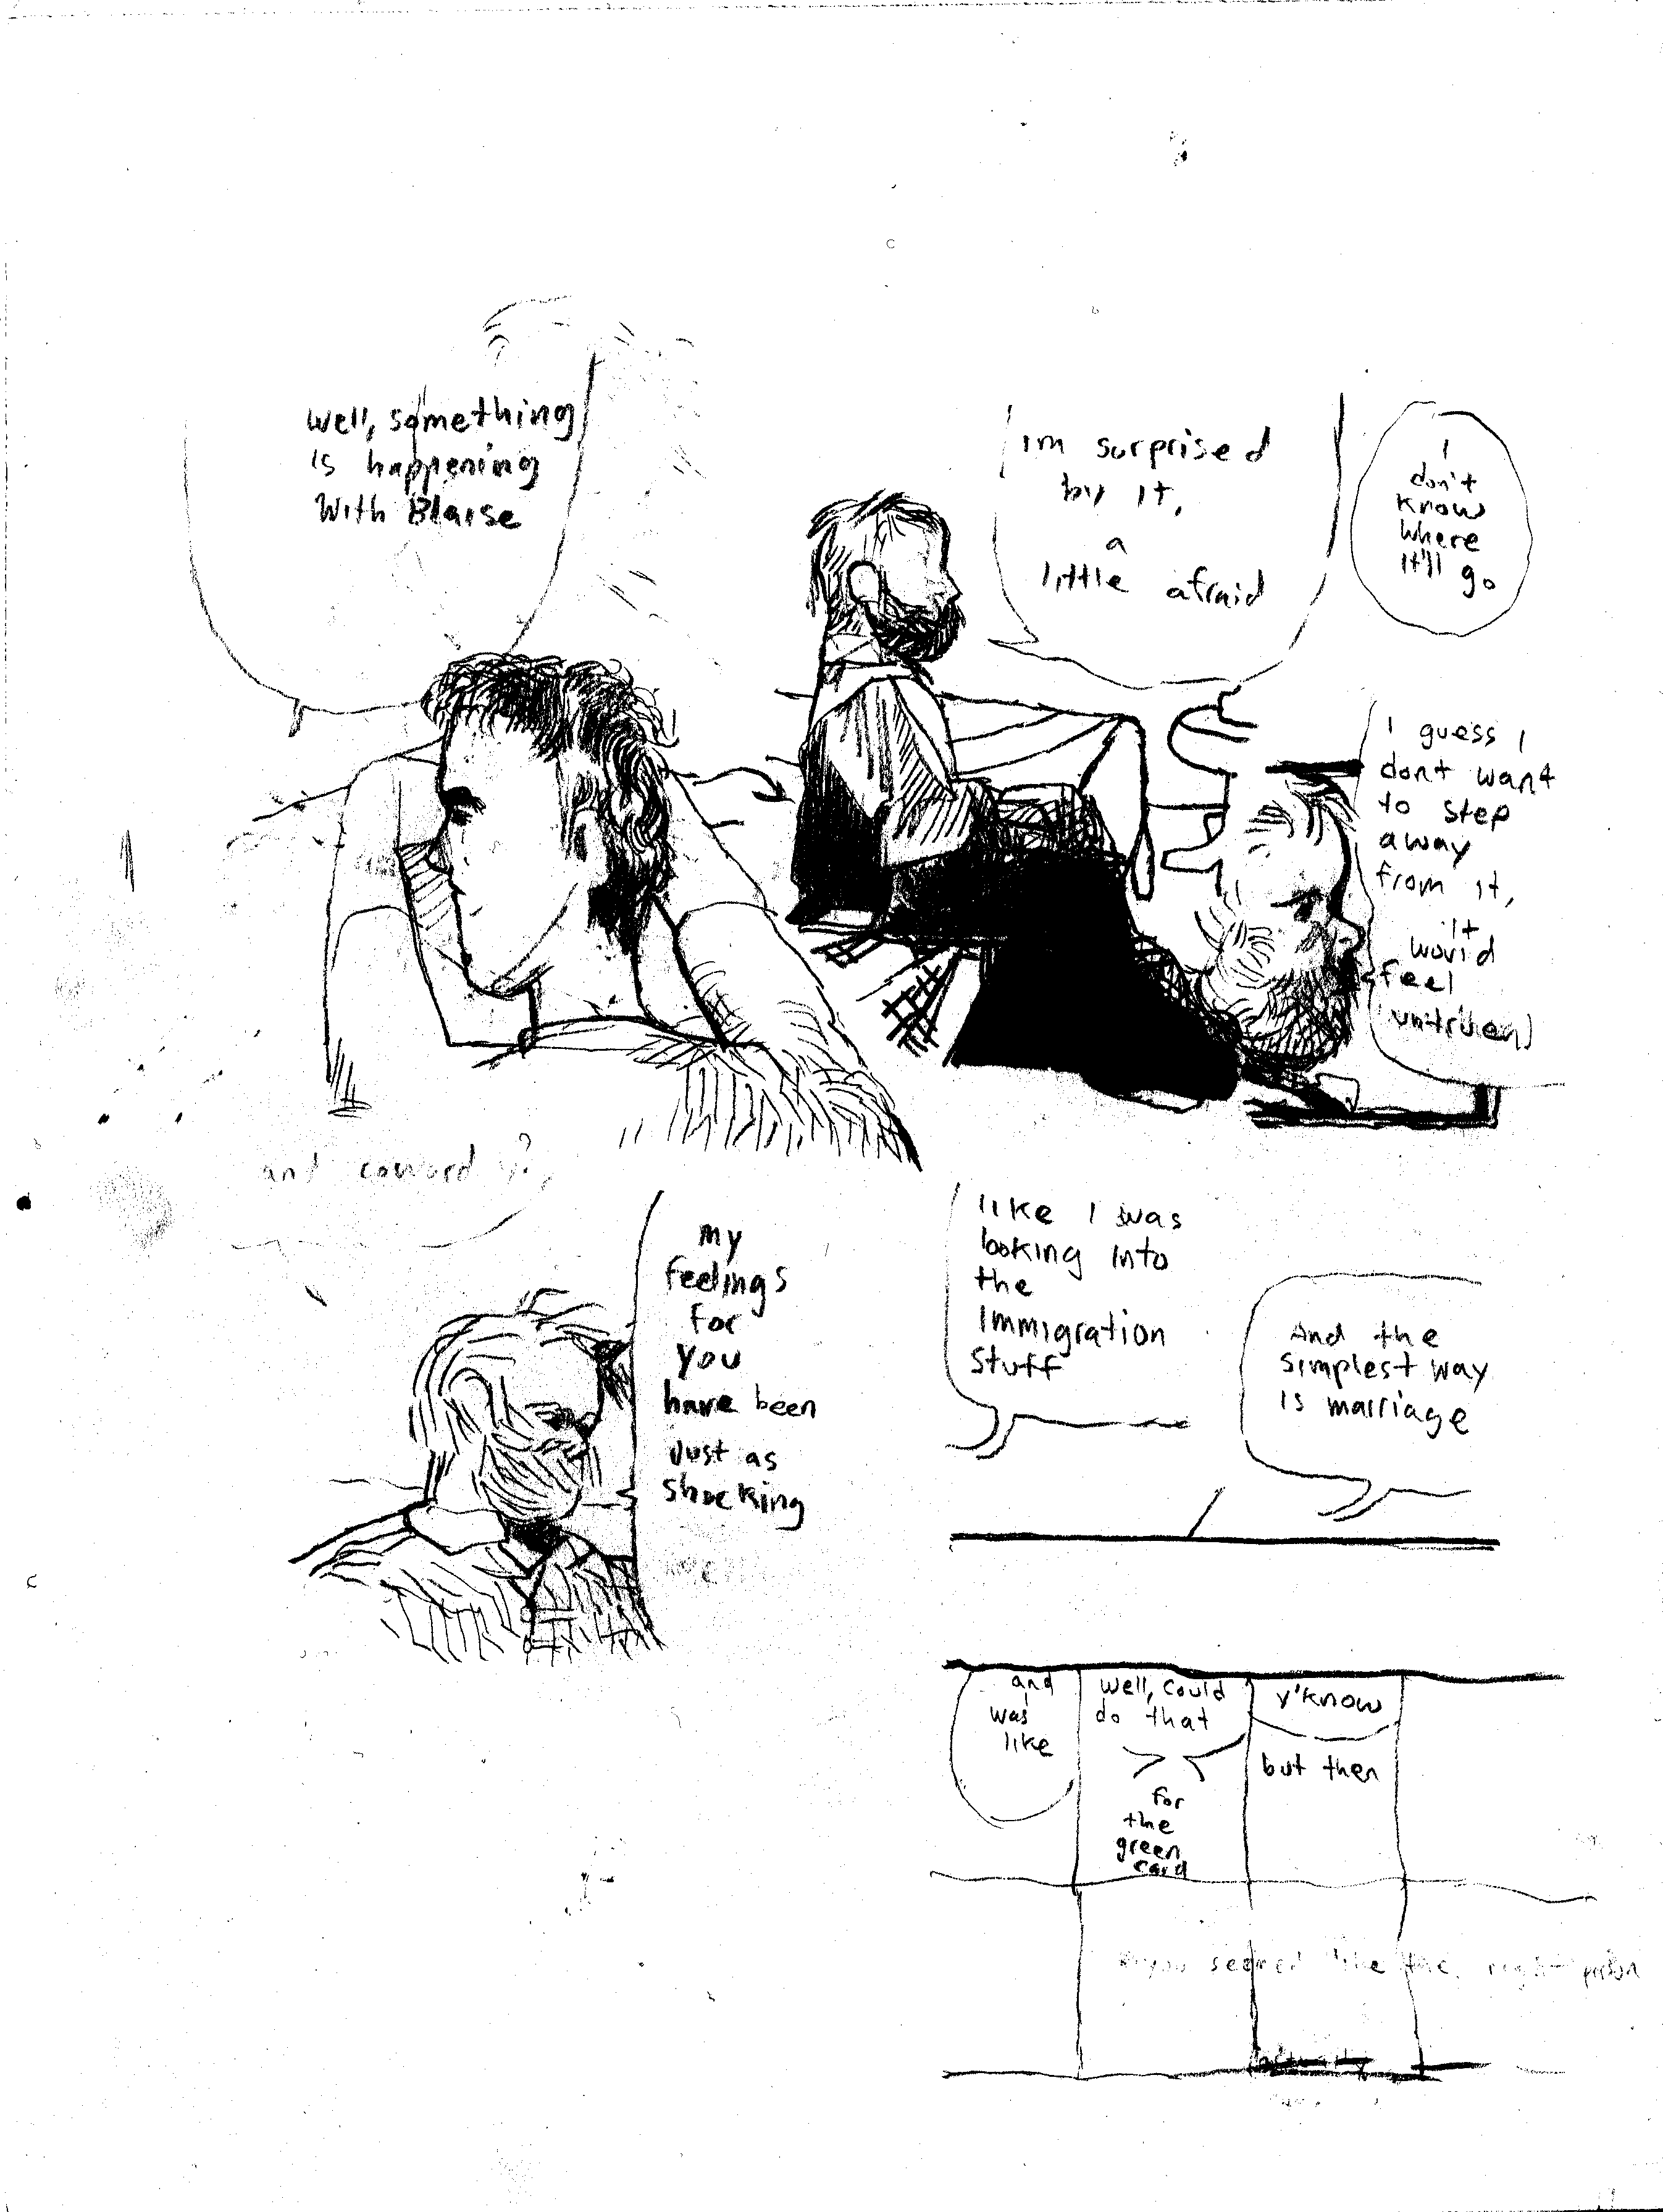 Well, something
is happening
with Blaise
im surprised
by it,
a
little afraid
I
don't
know
where
it'll go
I guess I
dont want
to step
away
from it,
it
would
feel
and coward
my
feelings
for
you
have been
Just as
shocking
like I was
looking into
the
Immigration
Stuff
And the
simplest way
is marriage
and
was
like
well, could
do that
for
the
green
card
y'know
but then
you seemed like the right